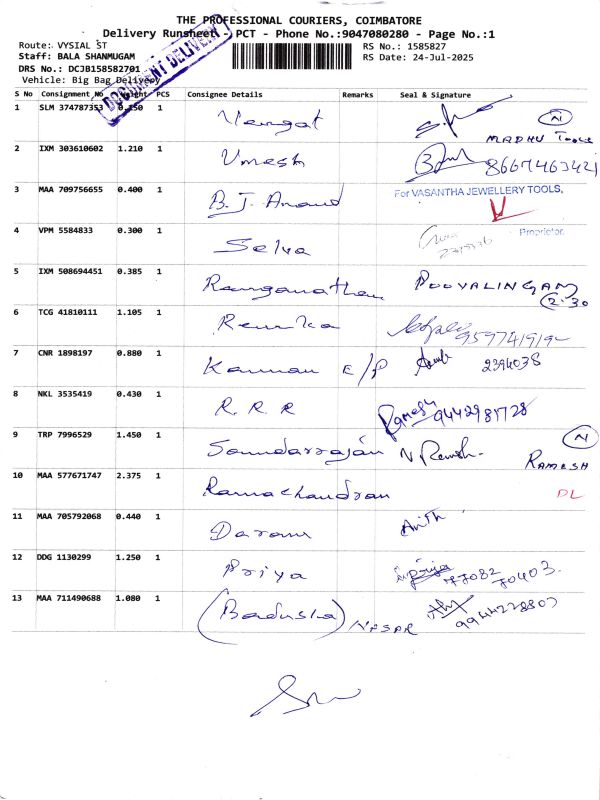 THE PROFESSIONAL COURIERS, COIMBATORE
Delivery Runsheet - PCT - Phone No.:9047080280 - Page No.:1
Route: VYSIAL ST
RS No.: 1585827
Staff: BALA SHANMUGAM
RS Date: 24-Jul-2025
DRS No.: DCJB158582701
Vehicle: Big Bag Delivery
DOCUMENT DELIVERY
S No Consignment No Weight PCS Consignee Details Remarks Seal & Signature
1 SLM 374787353 0.350 1 Vengat
MADHU Tools
2 IXM 303610602 1.210 1 Umesh 8667463421
3 MAA 709756655 0.400 1 B.J. Anand For VASANTHA JEWELLERY TOOLS,
Proprietor
4 VPM 5584833 0.300 1 Selva
5 IXM 508694451 0.385 1 Ranganathan POOVALINGAM
2-30
6 TCG 41810111 1.105 1 Renuka
7 CNR 1898197 0.880 1 Kannan E/P 2394038
8 NKL 3535419 0.430 1 R. R. R Ramesh 9442981728
9 TRP 7996529 1.450 1 Soundarrajan N Ramesh
RAMESH
10 MAA 577671747 2.375 1 Ramachandran DL
11 MAA 705792068 0.440 1 Anith
12 DDG 1130299 1.250 1 Priya 77082 70403
13 MAA 711490688 1.080 1 (Badusha) NASAR 9944228807